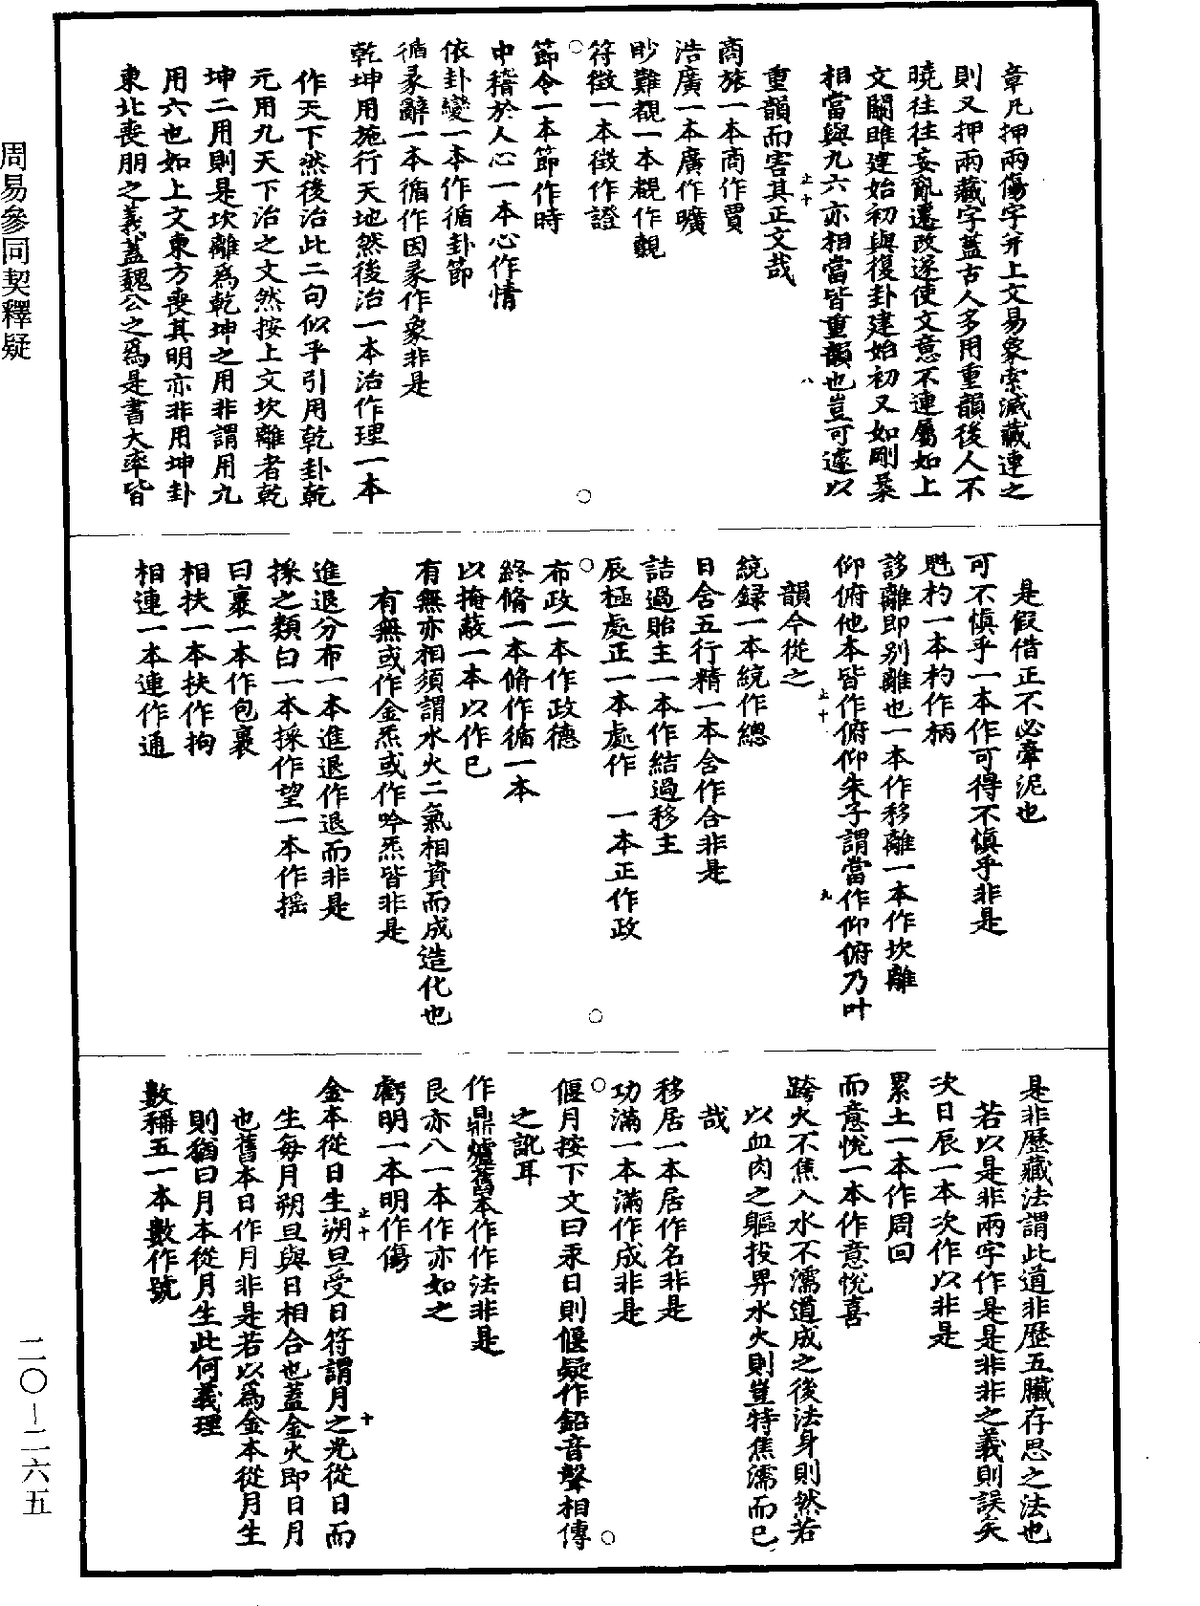 章凡押兩傷字并上文易象索滅藏連之
則又押兩藏字蓋古人多用重韻後人不
曉往往妄亂遷改遂使文意不連屬如上
文關雎建始初與復卦建始初又如剛柔
相當與九六亦相當皆重韻也豈可遽以
重韻而害其正文哉
商旅一本商作賈
浩廣一本廣作曠
眇難覩一本覩作觀
符徵一本徵作證
節令一本節作時
中稽於人心一本心作情
依卦變一本作循卦節
循彖辭一本循作因彖作象非是
乾坤用施行天地然後治一本治作理一本
作天下然後治此二句似乎引用乾卦乾
元用九天下治之文然按上文坎離者乾
坤二用則是坎離爲乾坤之用非謂用九
用六也如上文東方喪其明亦非用坤卦
東北喪朋之義蓋魏公之爲是書大率皆
是假借正不必牽泥也
可不慎乎一本作可得不慎乎非是
魁杓一本杓作柄
誃離即别離也一本作移離一本作坎離
仰俯他本皆作俯仰朱子謂當作仰俯乃叶
韻今從之
統録一本統作總
日含五行精一本含作合非是
詰過貽主一本作結過移主
辰極處正一本處作　一本正作政
布政一本作政德
終脩一本脩作循一本
以掩蔽一本以作已
有無亦相須謂水火二氣相資而成造化也
有無或作金炁或作吟炁皆非是
進退分布一本進退作退而非是
採之類白一本採作望一本作摇
曰裹一本作包裹
相扶一本扶作拘
相連一本連作通
是非歷藏法謂此道非歷五臟存思之法也
若以是非兩字作是是非非之義則誤矣
次日辰一本次作以非是
累土一本作周回
而意悅一本作意悅喜
跨火不焦入水不濡道成之後法身則然若
以血肉之軀投畀水火則豈特焦濡而已
哉
移居一本居作名非是
功滿一本滿作成非是
偃月按下文曰汞日則偃疑作鉛音聲相傳
之訛耳
作鼎爐舊本作作法非是
艮亦八一本作亦如之
虧明一本明作傷
金本從日生朔旦受日符謂月之光從日而
生每月朔旦與日相合也蓋金火即日月
也舊本日作月非是若以爲金本從月生
則猶曰月本從月生此何義理
數稱五一本數作號
上十
八
上十
九
上十
十
周易參同契釋疑
二〇－二六五